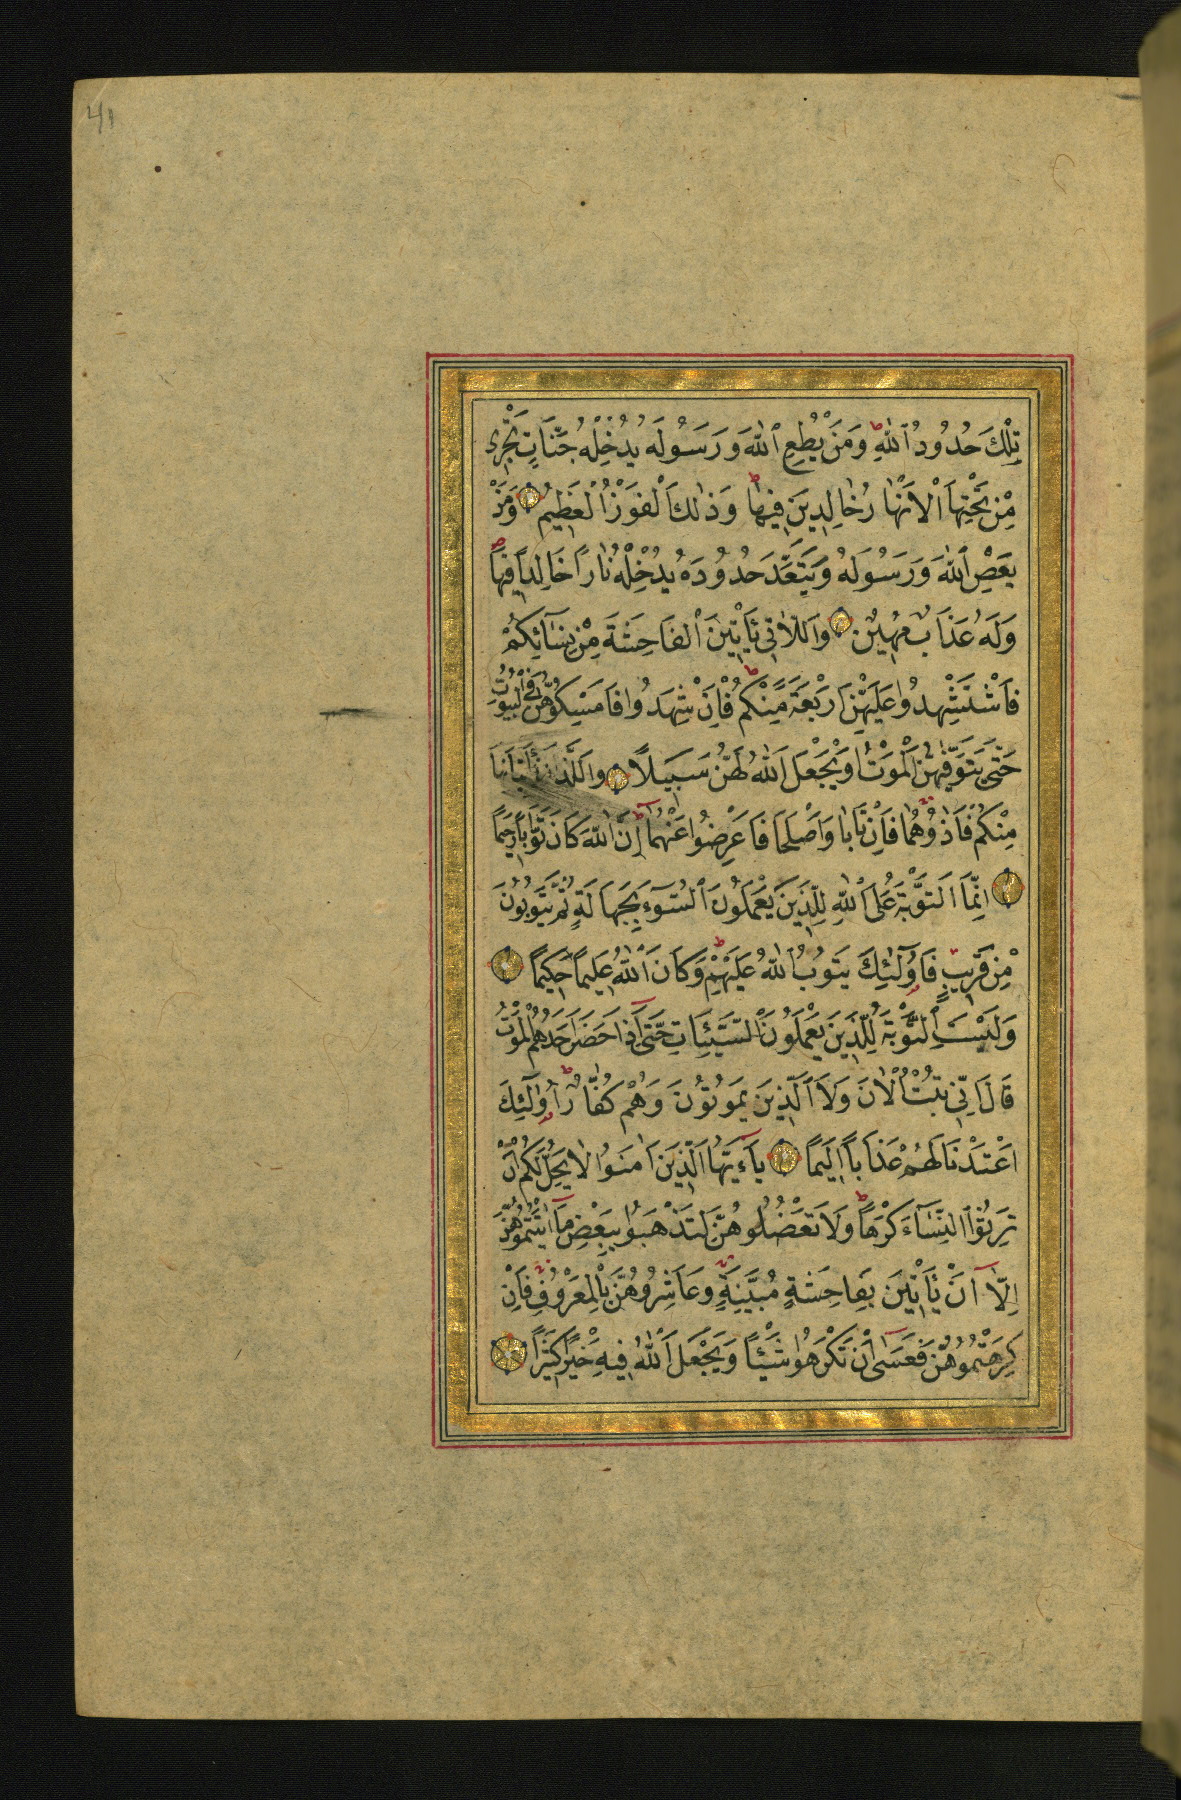 تِلْكَ حُدُودُ ٱللّٰهِ ط وَمَنْ يُطِعِ ٱللّٰهَ وَرَسُولَهُ يُدْخِلْهُ جَنَّاتٍ تَجْرِى
مِنْ تَحْتِهَا ٱلْاَنْهَارُ خَالِدِينَ فِيهَا ط وَذٰلِكَ ٱلْفَوْزُ ٱلْعَظِيمُ وَمَنْ
يَعْصِ ٱللّٰهَ وَرَسُولَهُ وَيَتَعَدَّ حُدُودَهُ يُدْخِلْهُ نَارًا خَالِدًا فِيهَا ص
وَلَهُ عَذَابٌ مُهِينٌ وَاللَّاتِى يَأْتِينَ ٱلْفَاحِشَةَ مِنْ نِسَآئِكُمْ
فَاسْتَشْهِدُوا عَلَيْهِنَّ اَرْبَعَةً مِنْكُمْ ط فَاِنْ شَهِدُوا فَاَمْسِكُوهُنَّ فِى ٱلْبُيُوتِ
حَتّٰى يَتَوَفّٰهُنَّ ٱلْمَوْتُ اَوْ يَجْعَلَ ٱللّٰهُ لَهُنَّ سَبِيلًا وَالَّذَانِ يَأْتِيَانِهَا
مِنْكُمْ فَاٰذُوهُمَا فَاِنْ تَابَا وَاَصْلَحَا فَاَعْرِضُوا عَنْهُمَا ط اِنَّ ٱللّٰهَ كَانَ تَوَّابًا رَحِيمًا
اِنَّمَا ٱلتَّوْبَةُ عَلَى ٱللّٰهِ لِلَّذِينَ يَعْمَلُونَ ٱلسُّوٓءَ بِجَهَالَةٍ ثُمَّ يَتُوبُونَ
مِنْ قَرِيبٍ فَاُولٰٓئِكَ يَتُوبُ ٱللّٰهُ عَلَيْهِمْ ط وَكَانَ ٱللّٰهُ عَلِيمًا حَكِيمًا
وَلَيْسَتِ ٱلتَّوْبَةُ لِلَّذِينَ يَعْمَلُونَ ٱلسَّيِّئَاتِ حَتّٰٓى اِذَا حَضَرَ اَحَدَهُمُ ٱلْمَوْتُ
قَالَ اِنِّى تُبْتُ ٱلْاٰنَ وَلَا ٱلَّذِينَ يَمُوتُونَ وَهُمْ كُفَّارٌ ط اُولٰٓئِكَ
اَعْتَدْنَا لَهُمْ عَذَابًا اَلِيمًا يَآ اَيُّهَا ٱلَّذِينَ اٰمَنُوا لَا يَحِلُّ لَكُمْ اَنْ
تَرِثُوا ٱلنِّسَآءَ كَرْهًا ط وَلَا تَعْضُلُوهُنَّ لِتَذْهَبُوا بِبَعْضِ مَآ اٰتَيْتُمُوهُنَّ
اِلَّآ اَنْ يَأْتِينَ بِفَاحِشَةٍ مُبَيِّنَةٍ وَعَاشِرُوهُنَّ بِٱلْمَعْرُوفِ فَاِنْ
كَرِهْتُمُوهُنَّ فَعَسٰٓى اَنْ تَكْرَهُوا شَيْئًا وَيَجْعَلَ ٱللّٰهُ فِيهِ خَيْرًا كَثِيرًا